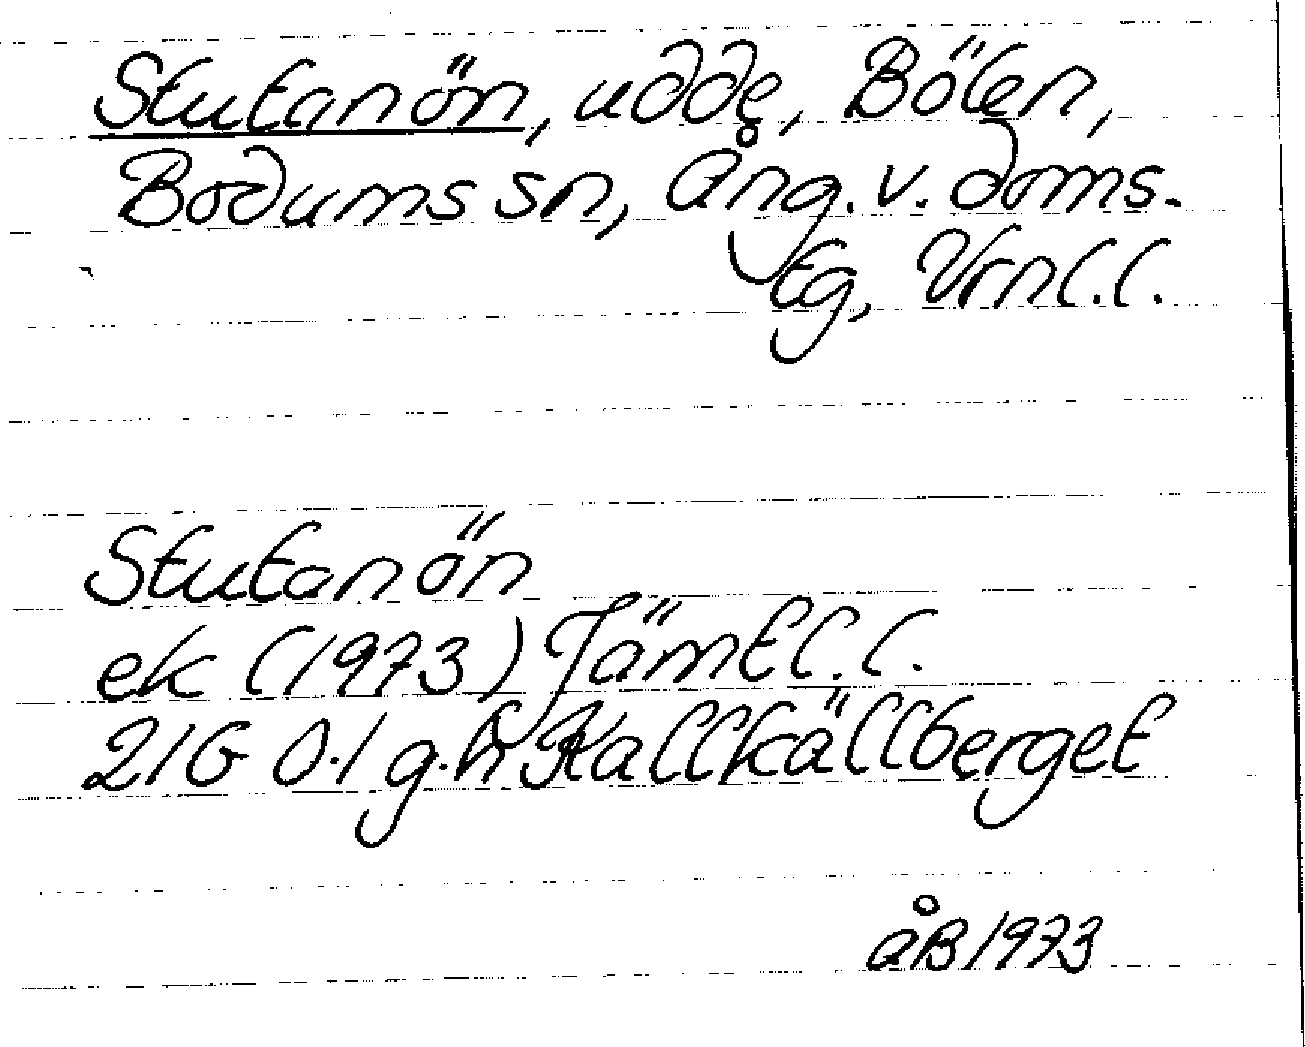 Stutanön, udde, Bölen,
Bodums sn, Ång. v. doms.
tg, Vrnl. l.
Stutanön
ek (1973) Jämtl. l.
21G 0.1 g.h Kallkällberget
åB 1973